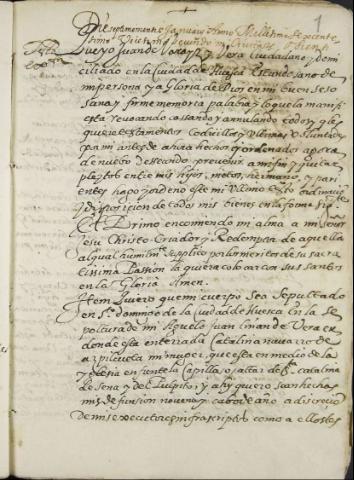 1
Die
Que yo Juan de y Vera ciudadano y domi
ciliado en la ciudad de Huesca estando sano de
mi persona y a Gloria de Dios en mi buen seso
sana y firme memoria palabra y loquela manifi
esta revocando cassando y annulando todos y qles
quiere testamentos codicillos y ultimas voluntades
por mi antes de ahora hechos y ordenados aora
de nuevo desseando prevenir a mi fin y quitar
pleytos entre mis hijos, nietos, hermano, y pari
entes hago y ordeno este mi ultimo
disposicion de todos mis bienes en la forma sig.
Et Primo encomiendo mi alma a mi señor
Jesu Christo Criador y Redemptor de aquella
al qual humilmte supplico por los meritos de su sacra
tissima Passion la quiera colocar con sus santos
en la Gloria Amen.
Item quiero que mi cuerpo sea sepultado
en Sto. Domingo de la ciudad de Huesca en la se
poltura de mi Aguelo Juan de Vera
donde esta enterrada Catalina navarro de
azpilcueta mi muger, que esta en medio de la
yglesia en frente la capilla y altar de Sta. catalina
de Sena y del Pulpito, y assi quiero sean hechas
mis defunsion novena y cabo de año a discrecion
de mis executores infrascriptos como a ellos les